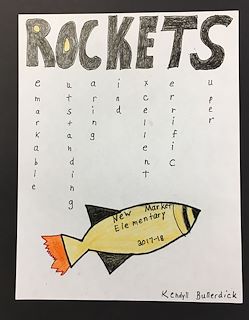 ROCKETS
emarkable
utstanding
aring
ind
xcellent
errific
uper
New Market
Elementary
2017-18
Kendyll Bullerdick